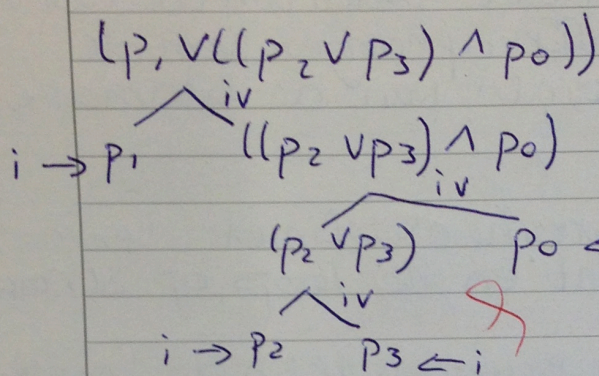 (p₁ ∨ ((p₂ ∨ p₃) ∧ p₀))
iv
i → p₁ ((p₂ ∨ p₃) ∧ p₀)
iv
(p₂ ∨ p₃) p₀ ←
iv
i → p₂ p₃ ← i